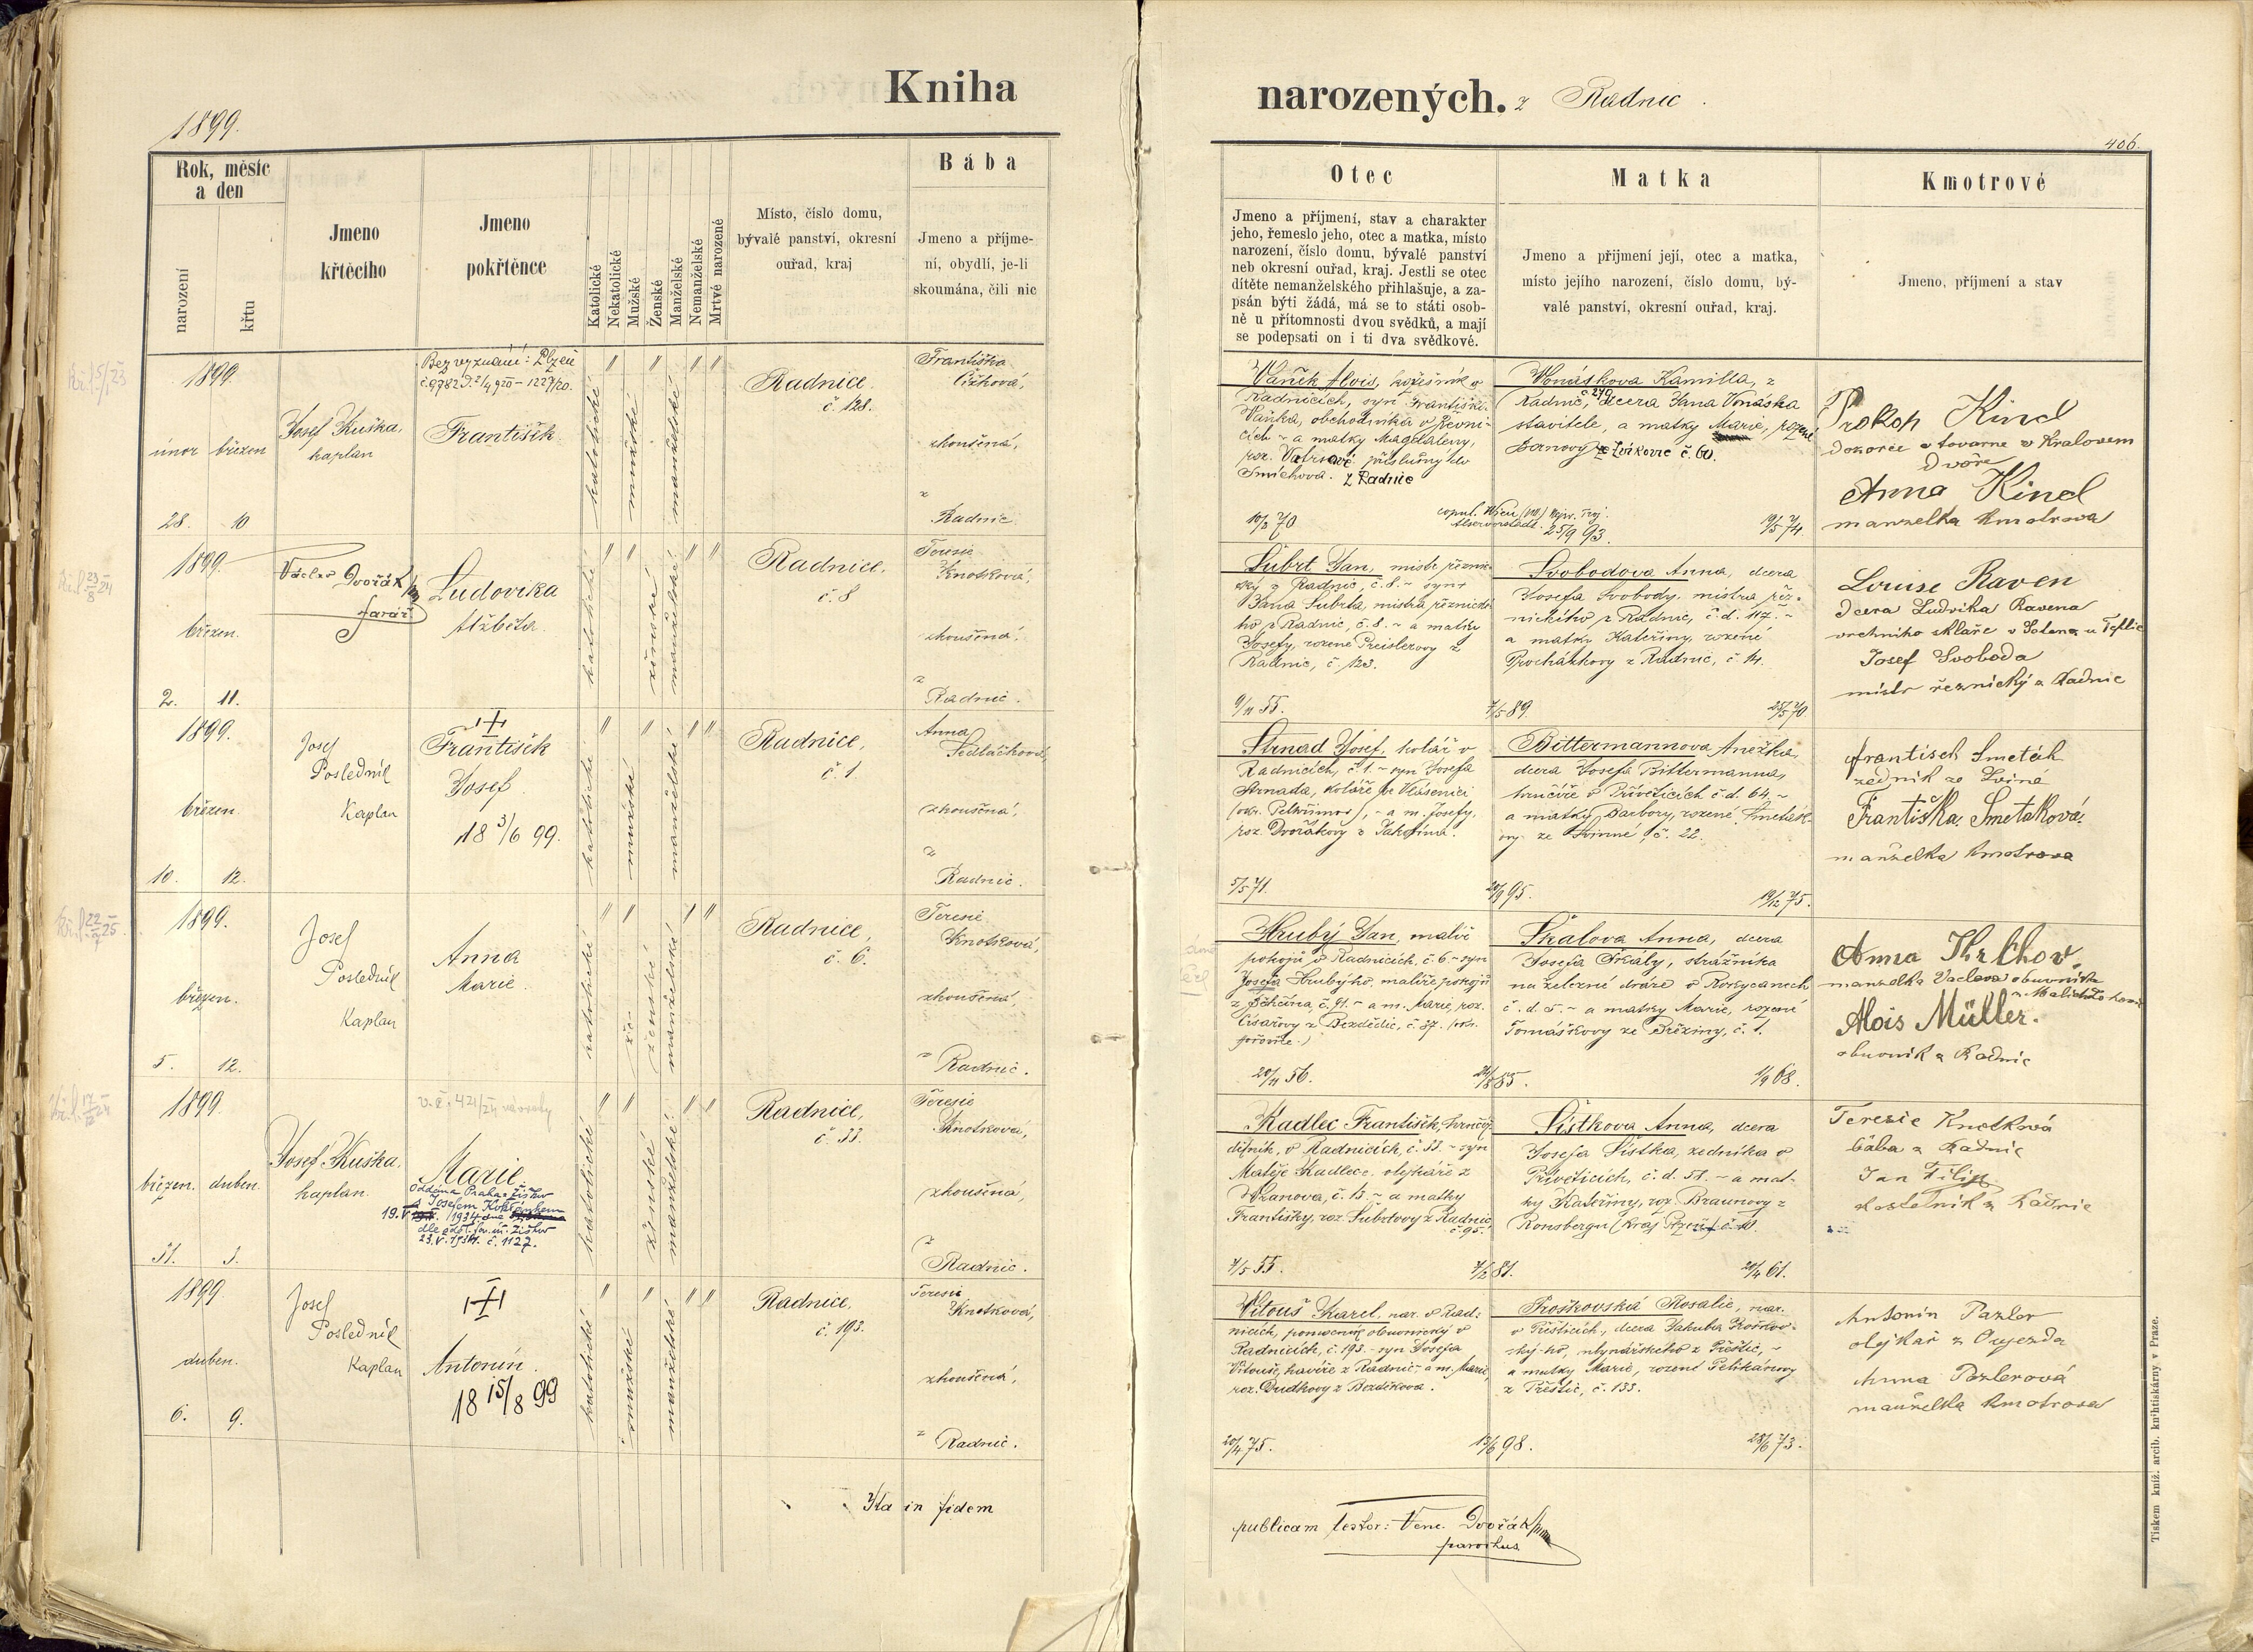 Kniha
narozených. z Radnic.
1899.
406.
Rok, měsíc
a den
narození
křtu
Jmeno
křtěcího
Jmeno
pokřtěnce
Katolické
Nekatolické
Mužské
Ženské
Manželské
Nemanželské
Mrtvé narozené
Místo, číslo domu,
bývalé panství, okresní
ouřad, kraj
Bába
Jmeno a příjme-
ní, obydlí, je-li
skoumána, čili nic
Otec
Jmeno a příjmení, stav a charakter
jeho, řemeslo jeho, otec a matka, místo
narození, číslo domu, bývalé panství
neb okresní ouřad, kraj. Jestli se otec
dítěte nemanželského přihlašuje, a za-
psán býti žádá, má se to státi osob-
ně u přítomnosti dvou svědků, a mají
se podepsati on i ti dva svědkové.
Matka
Jmeno a přijmení její, otec a matka,
místo jejího narození, číslo domu, bý-
valé panství, okresní ouřad, kraj.
Kmotrové
Jmeno, příjmení a stav
1899.
únor březen
28. 10
Josef Kuška,
kaplan
Bez vyznání: Plzeň
František
katolické
mužské
manželské
Radnice.
č. 128.
Františka
Čížková,
zkoušená,
z
Radnic.
Vaněk Alois, kožešník v
Radnicích, syn Františka
Vaňka, obchodníka v Řevni-
cích - a matky Magdaleny,
roz. příslušný do
Smíchova. z Radnic
10/3 70
25/9 93.
Vonáskova Kamilla, z
Radnic, č. 270 dcera Jana Vonáska
stavitele, a matky Marie, rozené
č. 60.
19/5 74.
Prokop Kincl
dozorce v tovarne v Kralovem
dvoře
Anna Kincl
manzelka kmotrova
1899.
březen.
2. 11.
Václav Dvořák
farář.
Ludovika
Alžběta.
katolické
ženské
manželské
Radnice,
č. 8
Teresie
Knotková,
zkoušená,
z
Radnic.
Šubrt Jan, mistr řeznic-
ký z Radnic, č. 8. - syn
Jana Šubrta, mistra řeznické-
ho z Radnic, č. 8. - a matky
Josefy, rozené Preislerovy z
Radnic, č. 123.
9/11 55.
7/5 89.
Svobodova Anna, dcera
Josefa Svobody, mistra řez-
nického z Radnic, č. d. 117. -
a matky Kateřiny, rozené
Procházkovy z Radnic, č. 14.
25/5 70.
Louise Raven
dcera Ludvika Ravena
vrchniho skláře v u Teplic
Josef Svoboda
mistr řeznický z Radnic
1899.
březen.
10. 12.
Josef
Poslednil
Kaplan
František
Josef.
18 3/6 99.
katolické
mužské
manželské
Radnice,
č. 1.
Anna
Sedláčková,
zkoušená,
z
Radnic.
Strnad Josef, kolář v
Radnicích, č. 1. - syn Josefa
Strnada, koláře ve Vlásenici
(okr. Pelhřimov), - a m. Josefy,
roz. Dvořákovy z
5/5 71.
20/9 95.
Bittermannova Anežka,
dcera Josefa Bittermanna,
hrnčíře v Přívěticích č. d. 64. -
a matky Barbory, rozené Smeták-
ovy ze Svinné, č. 22.
19/12 75.
František Smeták
zedník ze Sviné
Františka Smetaková.
manželka kmotrova
1899.
březen.
5. 12.
Josef
Poslednil
Kaplan
Anna
Marie.
katolické
ženské
manželské
Radnice,
č. 6.
Teresie
Knotková,
zkoušená,
z
Radnic.
Hrubý Jan, malíř
pokojů v Radnicích, č. 6. - syn
Josefa Hrubýho, malíře pokojů
z č. 91. - a m. Marie, roz.
Císařovy z Bezdědic, č. 37. (okr.
Hořovice.)
20/11 56.
24/8 85.
Škalova Anna, dcera
Josefa Škály, strážníka
na železné dráze v Rokycanech
č. d. 5. - a matky Marie, rozené
Tomáškovy ze Březiny, č. 1.
1/9 68.
Anna
manzelka Vaclava obuvníka
Alois Müller.
obuvník z Radnic
1899.
březen. duben.
31. 3.
Josef Kuška,
kaplan.
Marie.
oddána Praha-Žižkov
s Josefem
23.V.1934. č. 1127.
katolické
ženské
manželské
Radnice,
č. 33.
Teresie
Knotková,
zkoušená,
z
Radnic.
Kadlec František, hrnčíř.
dělník, v Radnicích, č. 33. - syn
Matěje Kadlece, olejkáře z
Vranova, č. 15. - a matky
Františky, roz. Šubrtovy z Radnic,
č. 95.
7/5 55.
7/2 81.
Šístkova Anna, dcera
Josefa Šístka, zedníka v
Přívěticích, č. d. 51. - a mat-
ky Kateřiny, roz. Braunovy z
Ronsbergu (kraj Plzeň) č. 10.
20/4 61.
Terezie Knotková
bába z Radnic
Jan Filip
kostelnik z Radnic
1899.
duben.
6. 9.
Josef
Poslednil
Kaplan
Antonín.
18 15/8 99
katolické
mužské
manželské
Radnice,
č. 193.
Teresie
Knotková,
zkoušená,
z
Radnic.
Vitouš Karel, nar. v Rad-
nicích, pomocník obuvnický v
Radnicích, č. 193. - syn Josefa
Vitouše, havíře z Radnic - a m. Marie,
roz. Dudkovy z Bezděkova.
20/4 75.
13/6 98.
Froškovská Rosalie, nar.
v Přešticích, dcera Jakuba Froškov-
ský-ho, mlynářského z Přeštic, -
a matky Marie, rozené Pelikánovy
z Přeštic, č. 133.
28/6 73.
Antonín Pazler
olejkař z Oujezda
Anna Pazlerová
manželka kmotrova
Ita in fidem
publicam testor: Venc. Dvořák
parochus
Tiskem kníž. arcib. knihtiskárny v Praze.